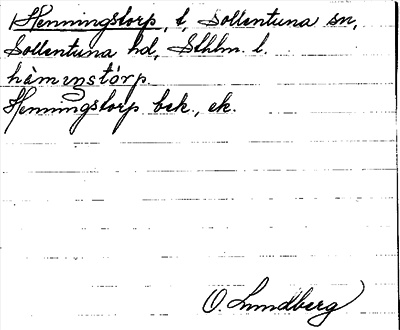 Henningstorp, t, Sollentuna sn,
Sollentuna hd, Sthlm. l.
hä̀mιŋstórp.
Henningstorp bek., ek.
O. Lundberg